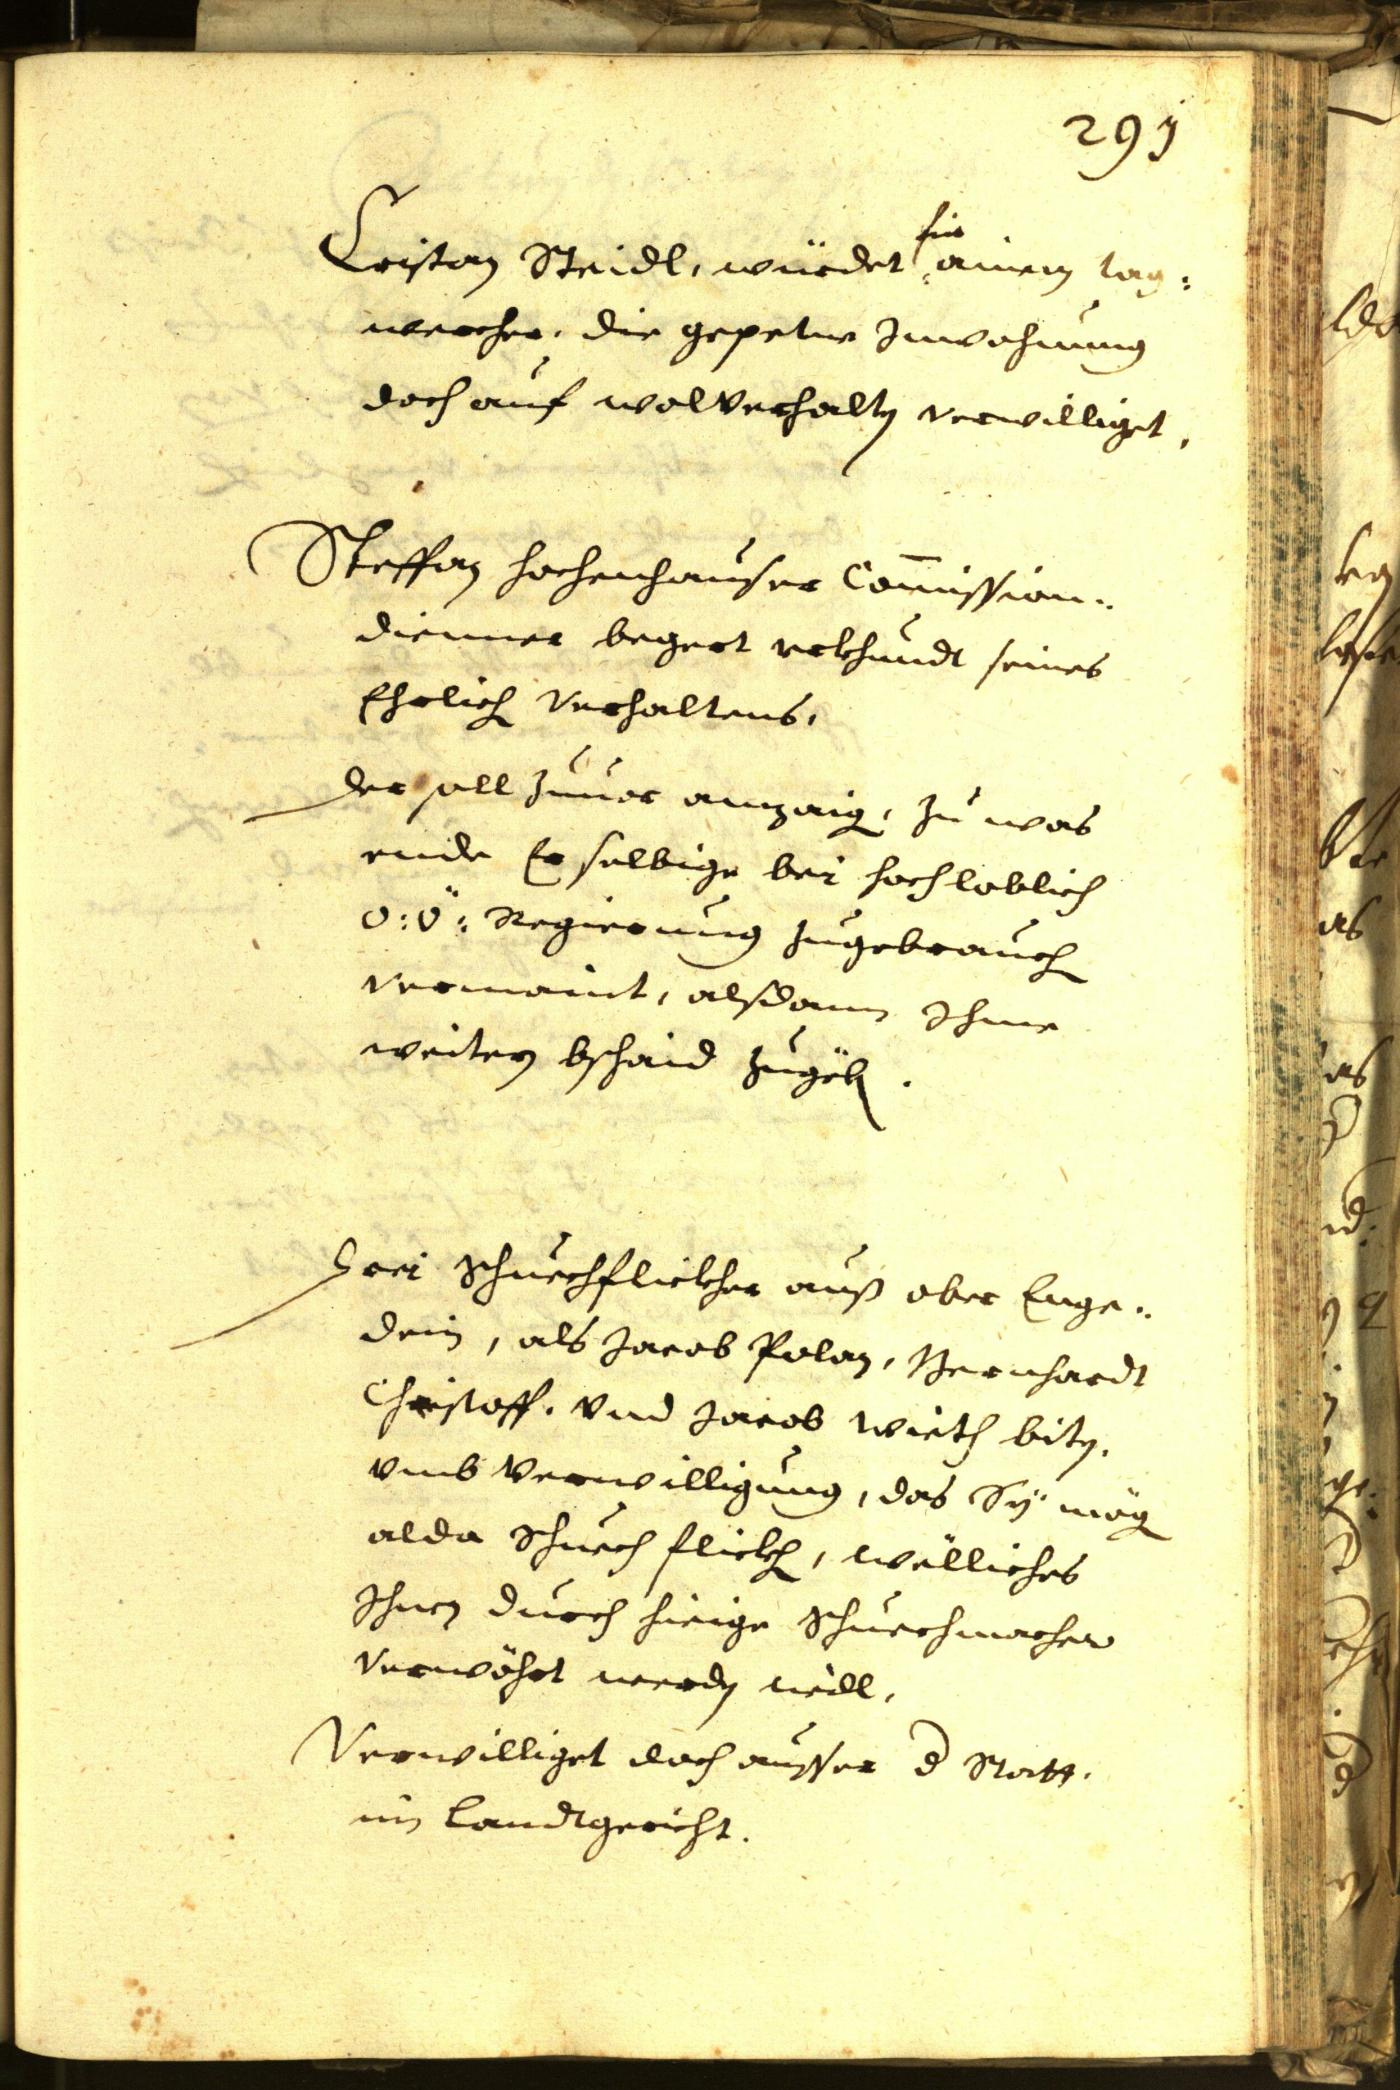 291
Cristan Steidl, würdet für ainen tag¬
wercher, die gepetne Inwohnung
doch auf wolverhaltn verwilliget,
Steffan Hochenhauser Comission¬
dienner begert vrkhundt seines
Ehrlich Verhaltens,
der soll zuuor anzaig, zu was
ende Er selbige bei hochloblich
O: Ö: Regierung zugebrauch
vermaint, alsdann Ihme
weitern bschaid zugeb.
Drei Schuechflickher auß ober Enge¬
dein, als Jacob Polan, Bernhardt
Christoff, vnd Jacob Wieth bitn,
vmb Verwilligung, das Sy mög
alda Schuech flickh, welliches
Ihnen durch hieige Schuechmacher
verwöhrt werdn will,
Verwilliget doch ausser d Statt,
im Landtgericht.